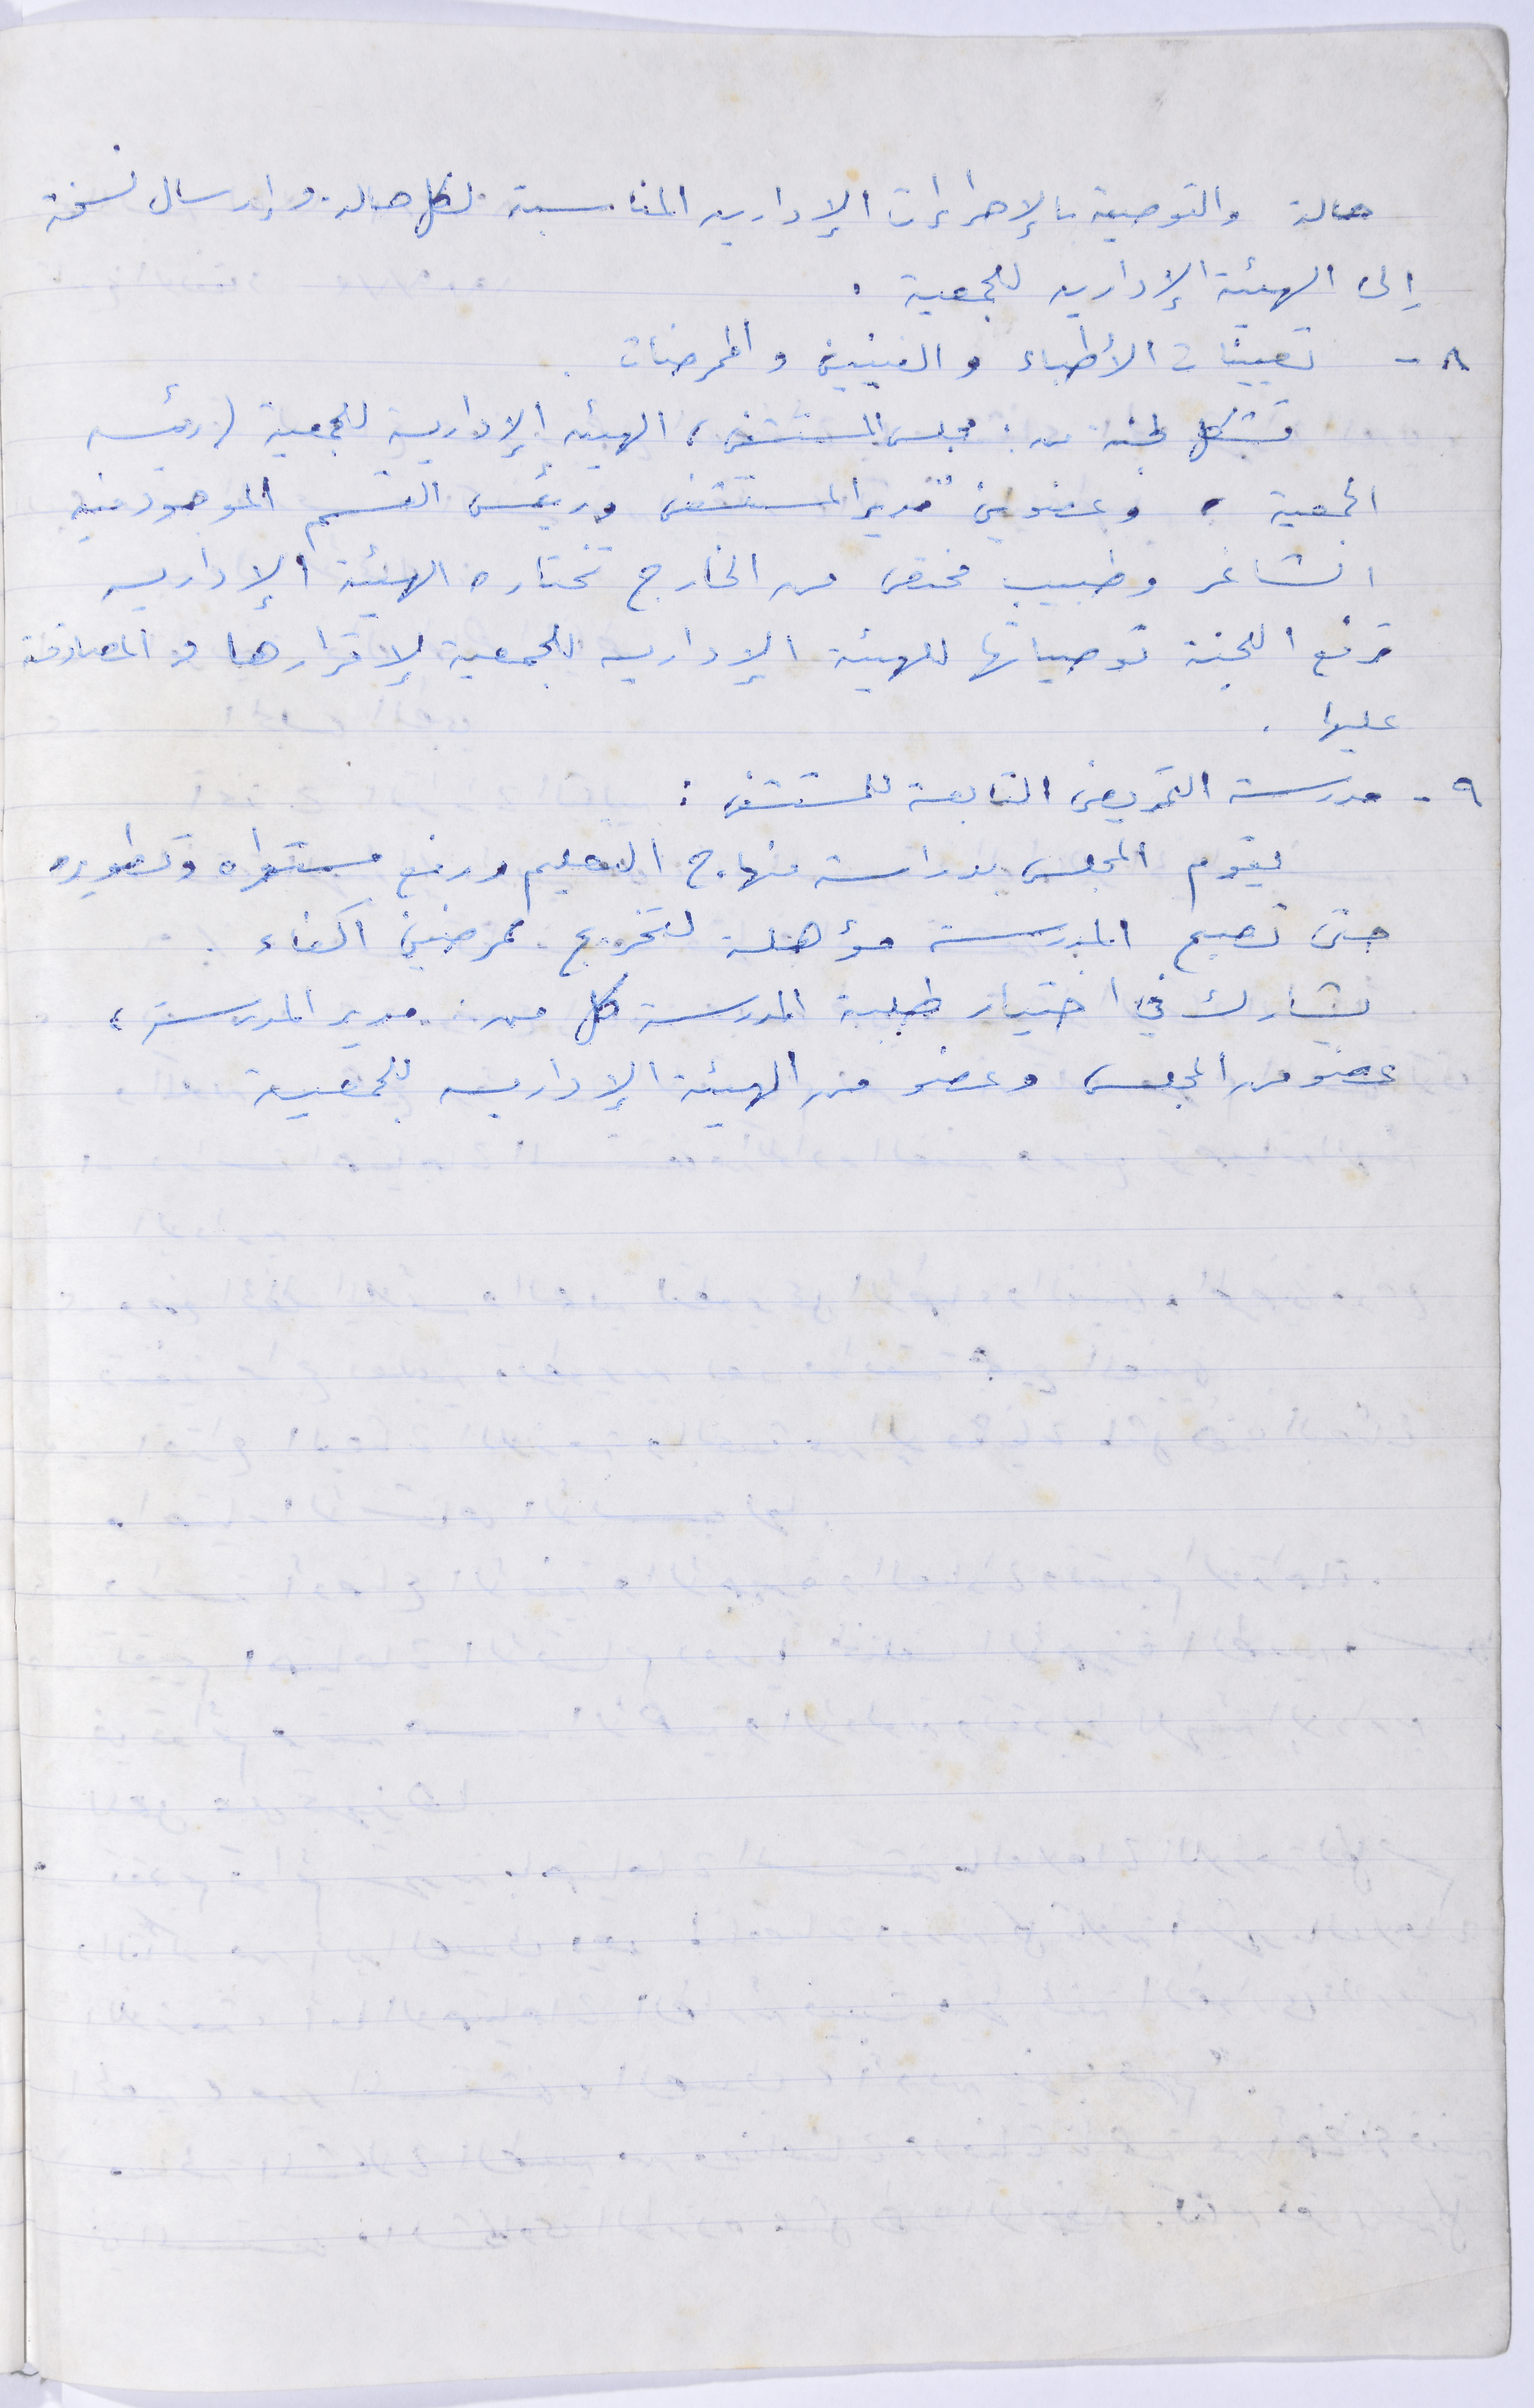 حالة والتوصية بالإجراءات الإدارية المناسبة لكل حالة. وإرسال نسخة
إلى الهيئة الإدارية للجمعية .
٨ - تعيينات الأطباء والفنيين والممرضات .
تشكل لجنة من : مجلس المستشفى ، الهيئة الإدارية للجمعية (رئيس
الجمعية ، وعضوين مدير المستشفى ورئيس القسم الموجود فيه
الشاغر وطبيب مختص من الخارج تختاره الهيئة الإدارية
ترفع اللجنة توصياتها للهيئة الإدارية للجمعية لإقرارها والمصادقة
عليها .
٩ - مدرسة التمريض التابعة للمستشفى :
يقوم المجلس بدراسة منهاج التعليم ورفع مستواه وتطويره
حتى تصبح المدرسة مؤهلة لتخريج ممرضين اكفاء .
يشارك في اختيار طلبة المدرسة كل من : مدير المدرسة ،
عضو من المجلس وعضو من الهيئة الإدارية للجمعية